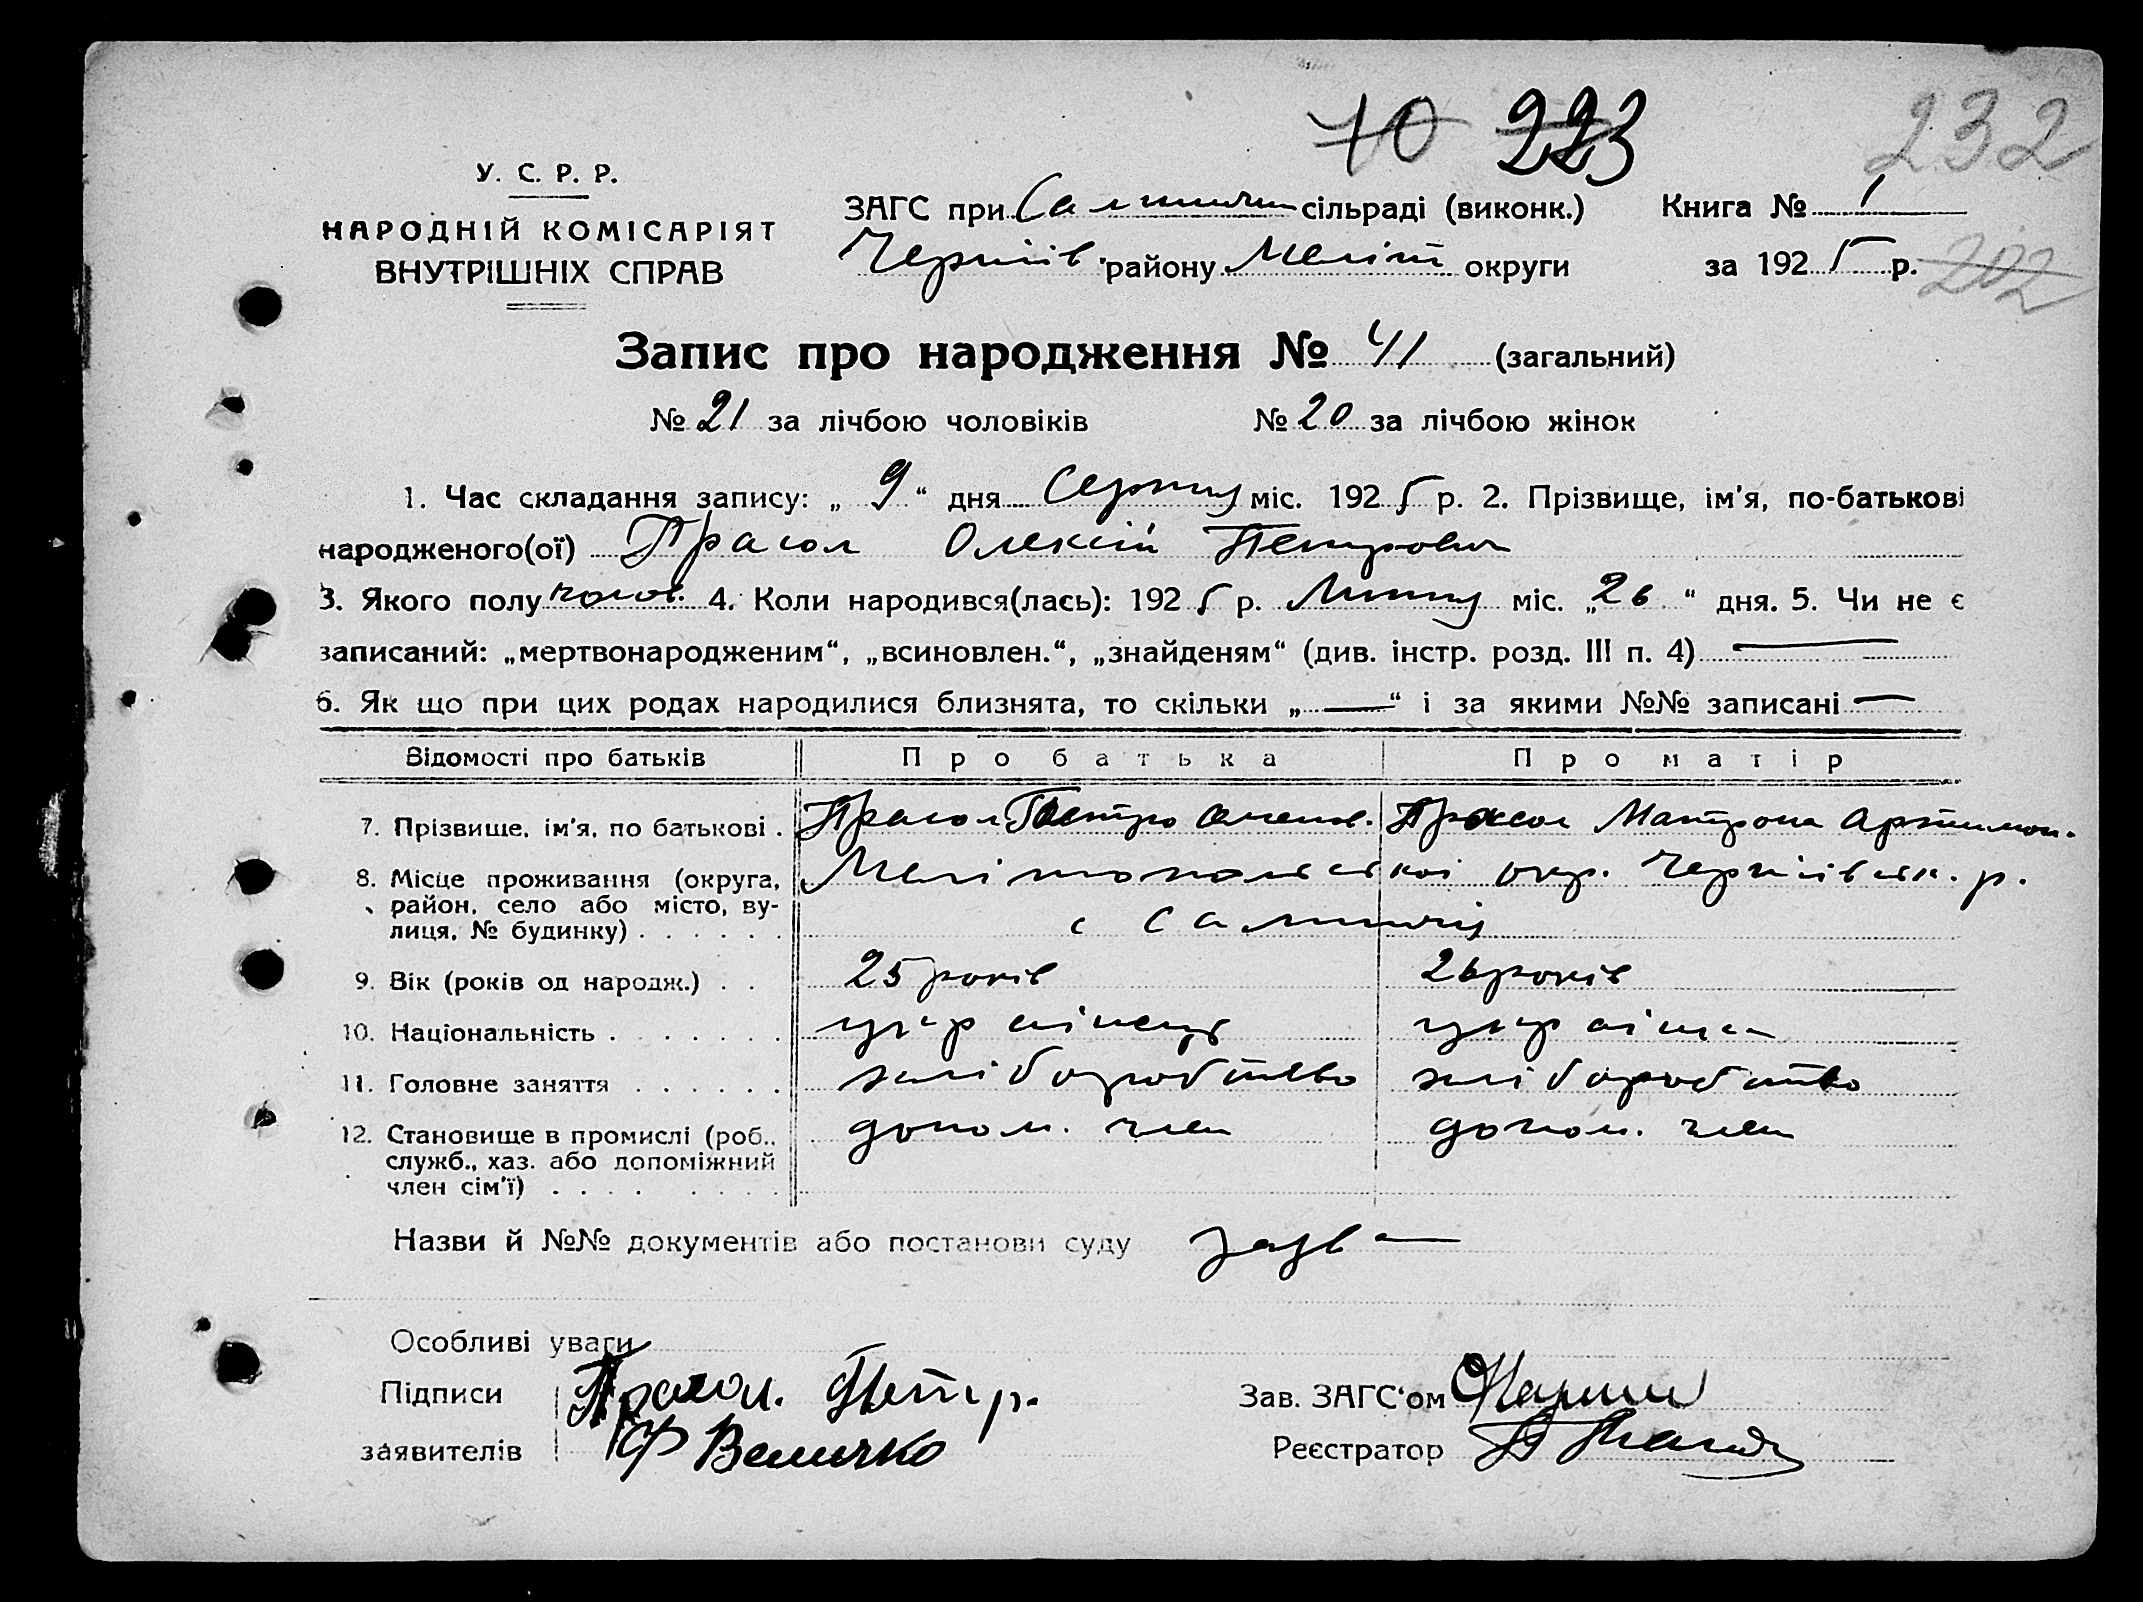 70 223 232
У. С. Р. Р.
НАРОДНІЙ КОМІСАРІЯТ
ВНУТРІШНІХ СПРАВ
ЗАГС при сільраді (виконк.) Книга № 1
Чернігів. району Меліт округи за 1925 р.
202
Запис про народження № 41 (загальний)
№ 21 за лічбою чоловіків № 20 за лічбою жінок
1. Час складання запису: „ 9 “ дня Серпня міс. 1925 р. 2. Прізвище, ім'я, по-батькові
народженого(ої) Прасол Олексій Петрович
3. Якого полу чолов. 4. Коли народився(лась): 1925 р. Липня міс. „26“ дня. 5. Чи не є
записаний: „мертвонародженим“, „всиновлен.“, „знайденям“ (див. інстр. розд. III п. 4) —
6. Як що при цих родах народилися близнята, то скільки „ — “ і за якими №№ записані —
Відомості про батьків Про батька Про матір
7. Прізвище, ім'я, по батькові . Прасол Петро Прасол Мотрона
8. Місце проживання (округа, Мелітопольської окр. Чернігівськ. р.
район, село або місто, ву-
лиця, № будинку) . . . . . . с
9. Вік (років од народж.) . . 25 років 26 років
10. Національність . . . . . . . українець українка
11. Головне заняття . . . . . . хліборобство хліборобство
12. Становище в промислі (роб., допом. член допом. член
служб., хаз. або допоміжний
член сім'ї) . . . . . . . .
Назви й №№ документів або постанови суду заява
Особливі уваги
Підписи Прасол. Петр. Зав. ЗАГС'ом
заявителів Ф Величко Реєстратор